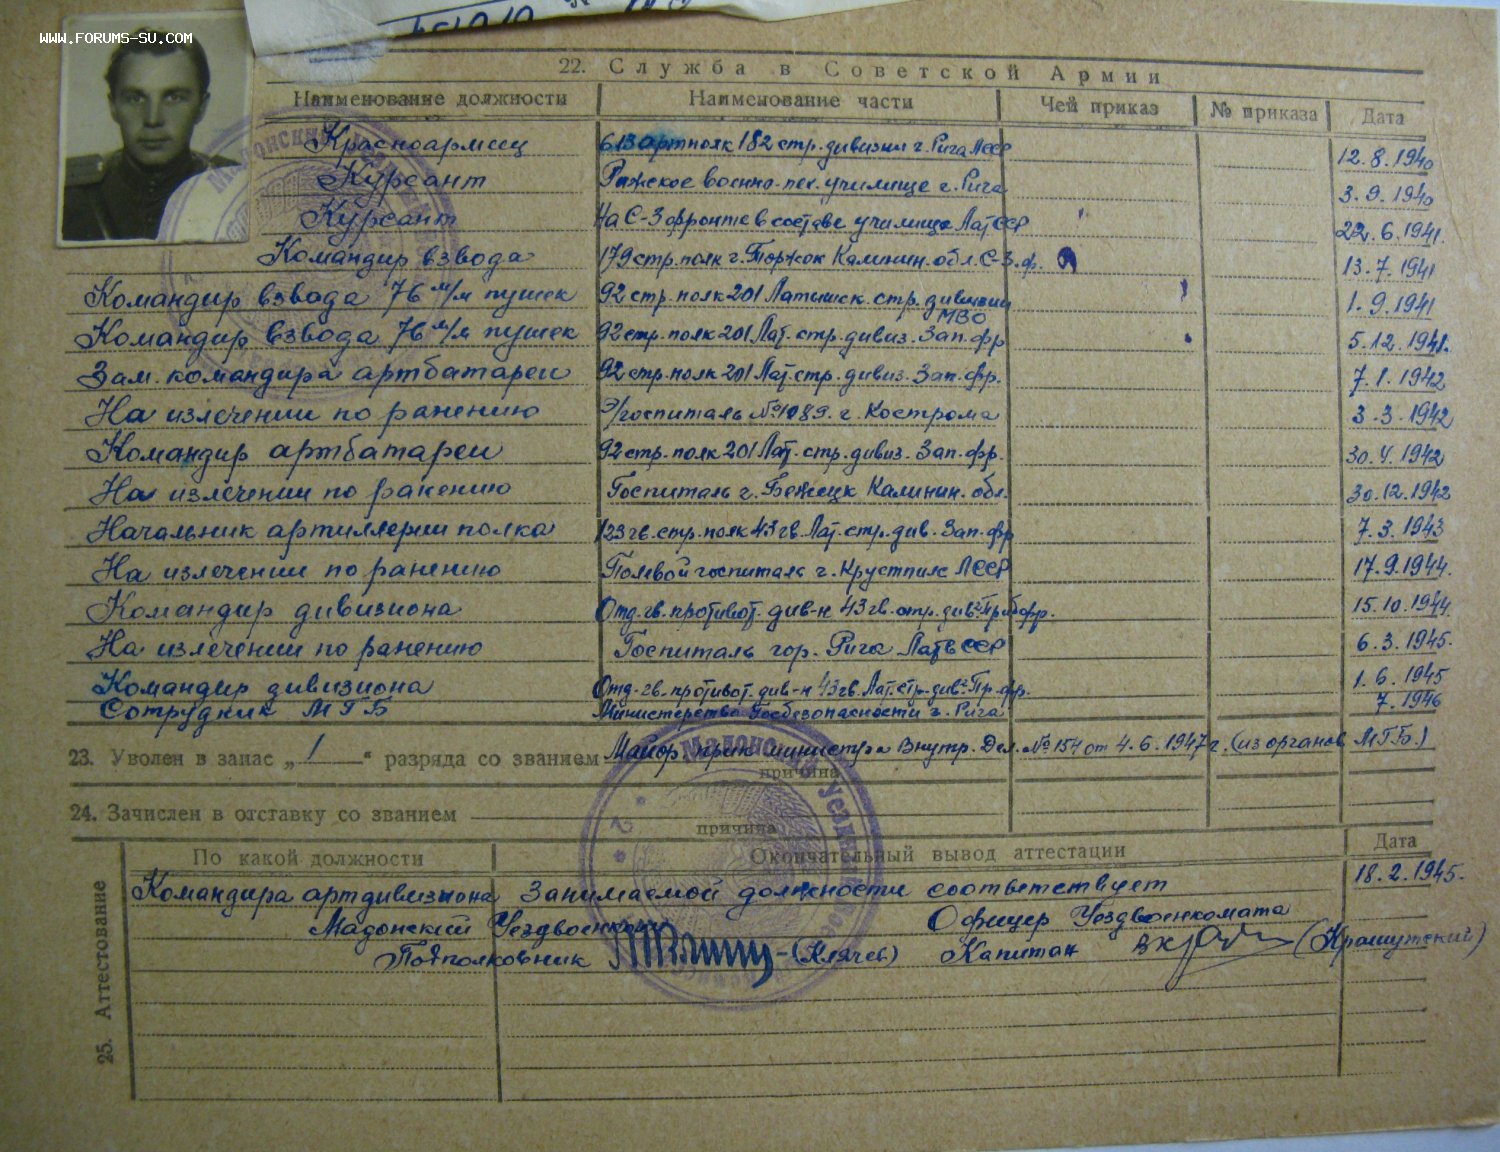 WWW.FORUMS-SU.COM
22. Служба в Советской Армии
Наименование должности Наименование части Чей приказ № приказа Дата
Красноармеец 613 артполк 182 стр. дивизии г. Рига ЛССР 12.8.1940
Курсант Рижское военно-пех. училище г. Рига 3.9.1940
Курсант На С-З фронте в составе училища ЛатССР 22.6.1941.
Командир взвода 179 стр. полк г. Торжок Калинин. обл. С-З. ф. 13.7.1941
Командир взвода 76 м/м пушек 92 стр. полк 201 Латышск. стр. дивизии 1.9.1941
МВО
Командир взвода 76 м/м пушек 92 стр. полк 201 Лат. стр. дивиз. Зап. фр 5.12.1941.
Зам. командира артбатареи 92 стр. полк 201 Лат. стр. дивиз. Зап. фр. 7.1.1942
На излечении по ранению Э/госпиталь №1089. г. Кострома 3.3.1942
Командир артбатареи 92 стр. полк 201 Лат. стр. дивиз. Зап. фр. 30.V.1942
На излечении по ранению Госпиталь г. Бежецк Калинин. обл. 30.12.1942
Начальник артиллерии полка 123 гв. стр. полк 43 гв. Лат. стр. див. Зап. фр 7.3.1943
На излечении по ранению Полевой госпиталь г. Крустпилс ЛССР 17.9.1944.
Командир дивизиона Отд. гв. противот. див-н 43 гв. стр. див. Приб. фр. 15.10.1944.
На излечении по ранению Госпиталь гор. Рига ЛатвССР 6.3.1945.
Командир дивизиона Отд. гв. противот. див-н 43 гв. Лат. стр. див. Пр. фр. 1.6.1945
Сотрудник МГБ Министерство Госбезопасности г. Рига 7.1946
23. Уволен в запас „ 1 “ разряда со званием Майор. прик. министра Внутр. Дел. №154 от 4.6.1947 г. (из органов МГБ.)
причина
24. Зачислен в отставку со званием
причина
25. Аттестование
По какой должности Окончательный вывод аттестации Дата
Командира артдивизиона Занимаемой должности соответствует 18.2.1945.
Мадонский Уездвоенком Офицер Уездвоенкомата
Подполковник (Клячев) Капитан (Крашутский)